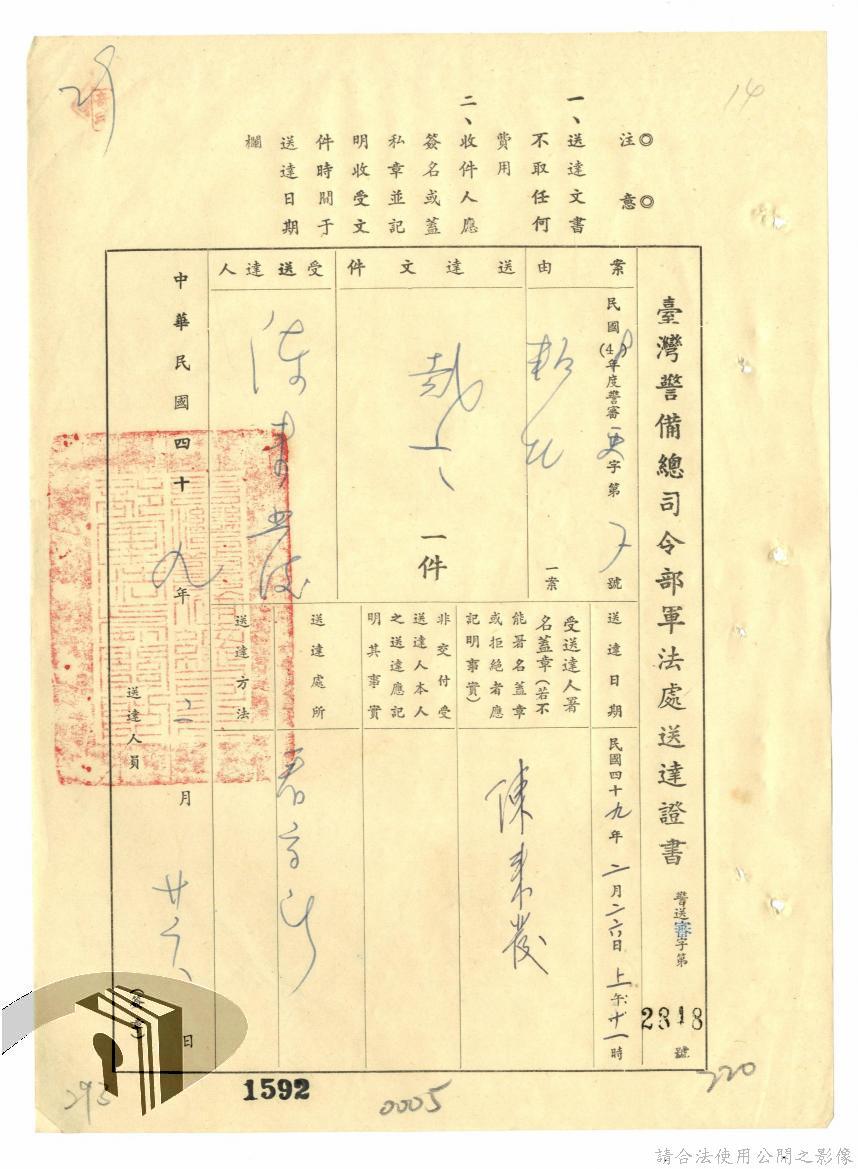 14
◎注意◎
一、送達文書
不取任何
費用
二、收件人應
簽名或蓋
私章並記
明收受文
件時間于
送達日期
欄
臺灣警備總司令部軍法處送達證書
警送審字第2818號
案由
民國(48)年度警審更字第7號
一案
送達文件
一件
受送達人
送達日期
民國四十九年二月二六日上午十一時
受送達人署
名蓋章(若不
能署名蓋章
或拒絕者應
記明事實)
陳秉發
非交付受
送達人本人
之送達應記
明其事實
送達處所
送達方法
中華民國四十九年二月廿六日
送達人員
(簽章)
293
1592
0005
220
請合法使用公開之影像